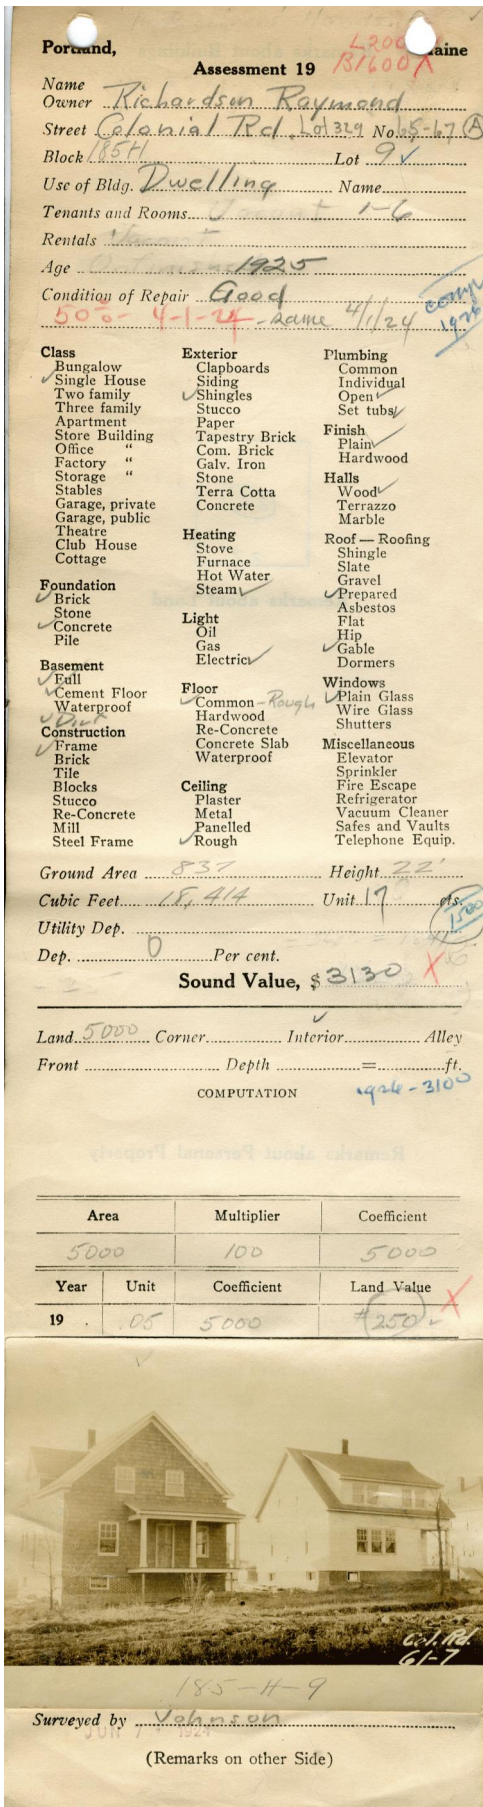 Portland, Maine
L200
B1600 X
Assessment 19
Name
Owner Richardson Raymond
Street Colonial Rd. Lot 329 No. 65-67 (A)
Block 185H Lot 9 ✓
Use of Bldg. Dwelling Name
Tenants and Rooms Vacant 1-6
Rentals Vacant
Age 1925
Condition of Repair Good
50% - 4-1-24 - same 4/1/24
Compl 1926
Class
Bungalow
✓ Single House
Two family
Three family
Apartment
Store Building
Office "
Factory "
Storage "
Stables
Garage, private
Garage, public
Theatre
Club House
Cottage
Foundation
✓ Brick
Stone
✓ Concrete
Pile
Basement
✓ Full
✓ Cement Floor
Waterproof
✓ Dirt
Construction
✓ Frame
Brick
Tile
Blocks
Stucco
Re-Concrete
Mill
Steel Frame
Exterior
Clapboards
Siding
✓ Shingles
Stucco
Paper
Tapestry Brick
Com. Brick
Galv. Iron
Stone
Terra Cotta
Concrete
Heating
Stove
Furnace
Hot Water
Steam ✓
Light
Oil
Gas
Electric ✓
Floor
✓ Common - Rough
Hardwood
Re-Concrete
Concrete Slab
Waterproof
Ceiling
Plaster
Metal
Panelled
✓ Rough
Plumbing
Common
Individual
Open ✓
Set tubs ✓
Finish
Plain ✓
Hardwood
Halls
Wood ✓
Terrazzo
Marble
Roof — Roofing
Shingle
Slate
Gravel
✓ Prepared
Asbestos
Flat
Hip
✓ Gable
Dormers
Windows
✓ Plain Glass
Wire Glass
Shutters
Miscellaneous
Elevator
Sprinkler
Fire Escape
Refrigerator
Vacuum Cleaner
Safes and Vaults
Telephone Equip.
Ground Area 837 Height 22'
Cubic Feet 18,414 Unit 17 cts.
1500
Utility Dep.
Dep. 0 Per cent.
Sound Value, $ 3130 X
Land 5000 Corner Interior ✓ Alley
Front Depth = ft.
COMPUTATION
1926 - 3100
Area Multiplier Coefficient
5000 100 5000
Year Unit Coefficient Land Value
19 . .05 5000 $250 ✓ X
Col. Rd.
61-7
185-H-9
Surveyed by Johnson
JUN 7 1924
(Remarks on other Side)